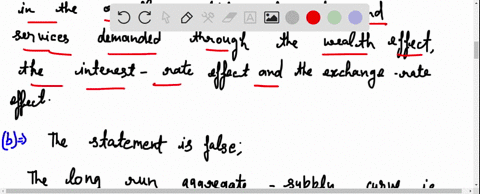 in the and
services demanded through the wealth effect,
the interest-rate effect and the exchange-rate
effect.
(b)⇒ The statement is false;
The long run aggregate-supply curve is